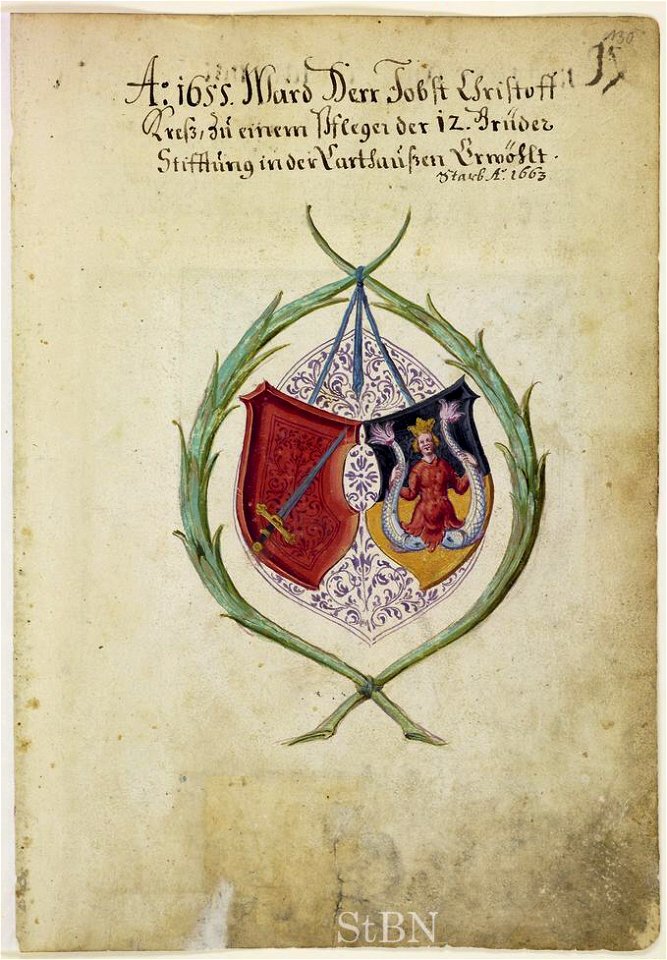 130
A.º 1655. Ward Herr Jobst Christoff
Kreß, zu einem Pfleger der 12. Brüder
Stifftung in der Carthaußen Erwöhlt.
Starb Aº. 1663
StBN